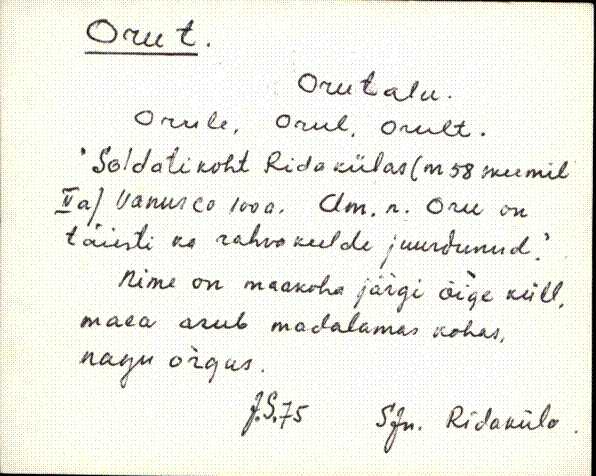 Oru t.
Oru talu.
Orule, Orul, Orult.
"Soldatikoht Ridakülas (m 58 skeemil
IVa) Vanus ca 100a. Am. n. Oru on
täiesti ka rahvakeelde juurdunud."
Nime on maakoha järgi õige küll,
maea asub madalamas kohas,
nagu orgus.
J.S. 75 Sjn. Ridaküla.